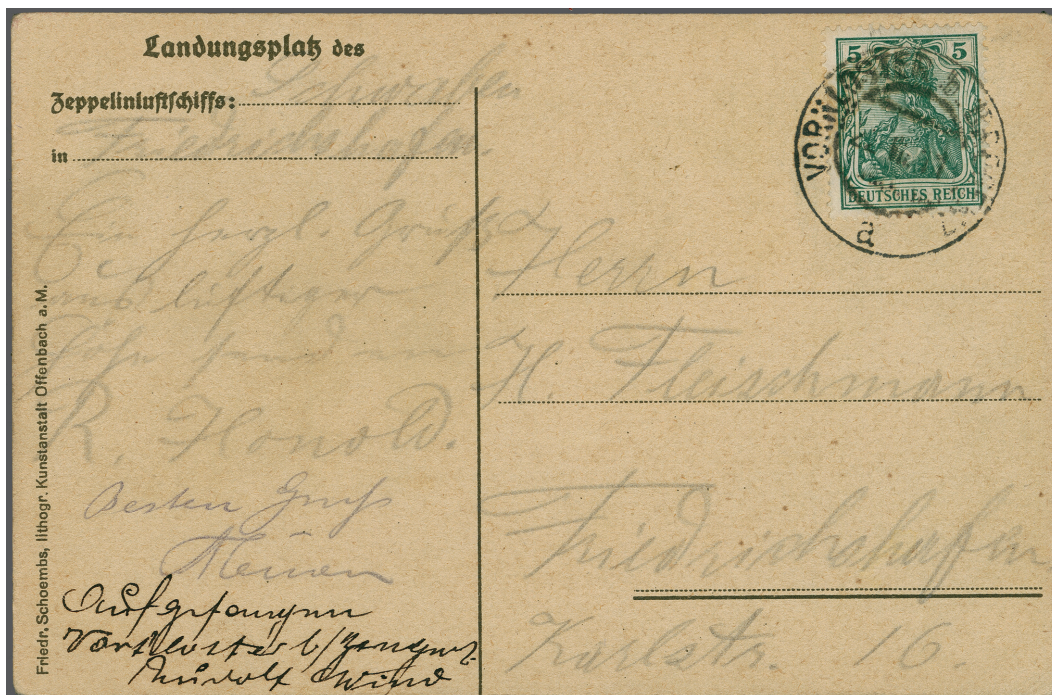 Landungsplatz des
Zeppelinluftschiffs: Schwaben
in Friedrichshafen
Ein herzl. Gruß
aus luftiger
Höhe send
R. Honold.
Besten Gruß
Aufgefangen
Rudolf
Friedr. Schoembs, lithogr. Kunstanstalt Offenbach a. M.
5 5
DEUTSCHES REICH
a
Herrn
H. Fleischmann
Friedrichshafen
Karlstr. 16.